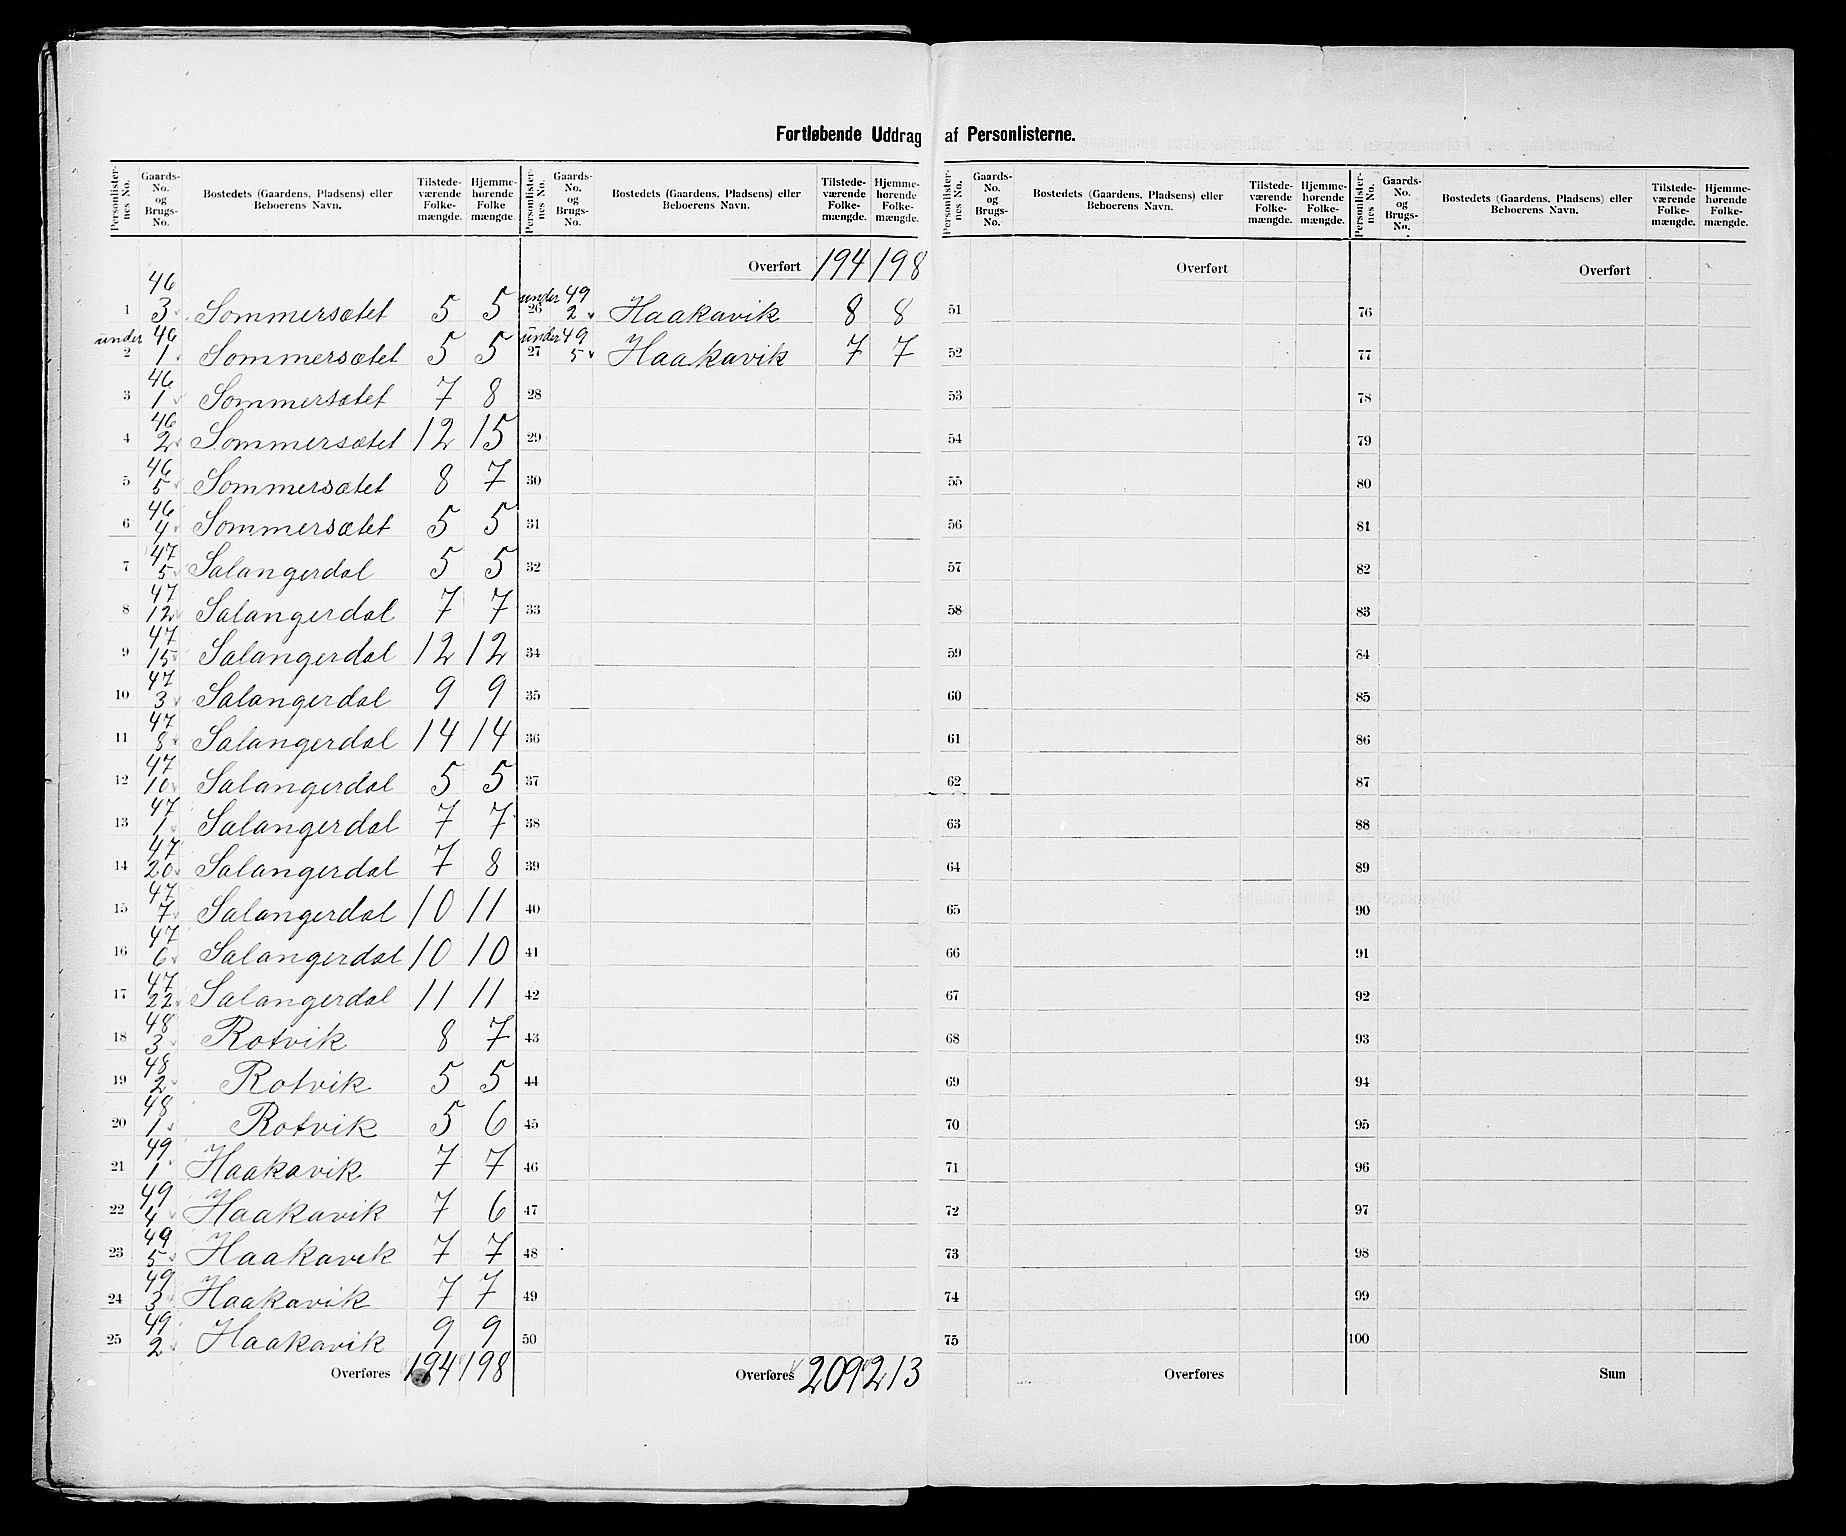 Fortløbende Uddrag af Personlisterne.
Personlister-nes No. Gaards-No. og Brugs-No. Bostedets (Gaardens, Pladsens) eller Beboerens Navn. Tilstede-værende Folke-mængde. Hjemme-hørende Folke mængde.
46
1 3 Sommersætet 5 5
under 46
2 1 Sommersætet 5 5
46
3 1 Sommersætet 7 8
46
4 2 Sommersætet 12 15
46
5 5 Sommersætet 8 7
46
6 4 Sommersætet 5 5
47
7 5 Salangerdal 5 5
47
8 12 Salangerdal 7 7
47
9 15 Salangerdal 12 12
47
10 3 Salangerdal 9 9
47
11 8 Salangerdal 14 14
47
12 10 Salangerdal 5 5
47
13 1 Salangerdal 7 7
47
14 20 Salangerdal 7 8
47
15 7 Salangerdal 10 11
47
16 6 Salangerdal 10 10
47
17 22 Salangerdal 11 11
48
18 3 Rotvik 8 7
48
19 2 Rotvik 5 5
48
20 1 Rotvik 5 6
49
21 1 Haakavik 7 7
49
22 4 Haakavik 7 6
49
23 5 Haakavik 7 7
49
24 3 Haakavik 7 7
49
25 2 Haakavik 9 9
Overføres 194 198
Personlister-nes No. Gaards-No. og Brugs-No. Bostedets (Gaardens, Pladsens) eller Beboerens Navn. Tilstede-værende Folke-mængde. Hjemme-hørende Folke-mængde.
Overført 194 198
under 49
26 2 Haakavik 8 8
under 49
27 5 Haakavik 7 7
28
29
30
31
32
33
34
35
36
37
38
39
40
41
42
43
44
45
46
47
48
49
50
Overføres 209 213
Personlister-nes No. Gaards-No. og Brugs-No. Bostedets (Gaardens, Pladsens) eller Beboerens Navn. Tilstede-værende Folke-mængde. Hjemme-hørende Folke-mængde.
Overført
51
52
53
54
55
56
57
58
59
60
61
62
63
64
65
66
67
68
69
70
71
72
73
74
75
Overføres
Personlister-nes No. Gaards-No. og Brugs-No. Bostedets (Gaardens, Pladsens) eller Beboerens Navn. Tilstede-værende Folke-mængde. Hjemme-hørende Folke-mængde.
Overført
76
77
78
79
80
81
82
83
84
85
86
87
88
89
90
91
92
93
94
95
96
97
98
99
100
Sum